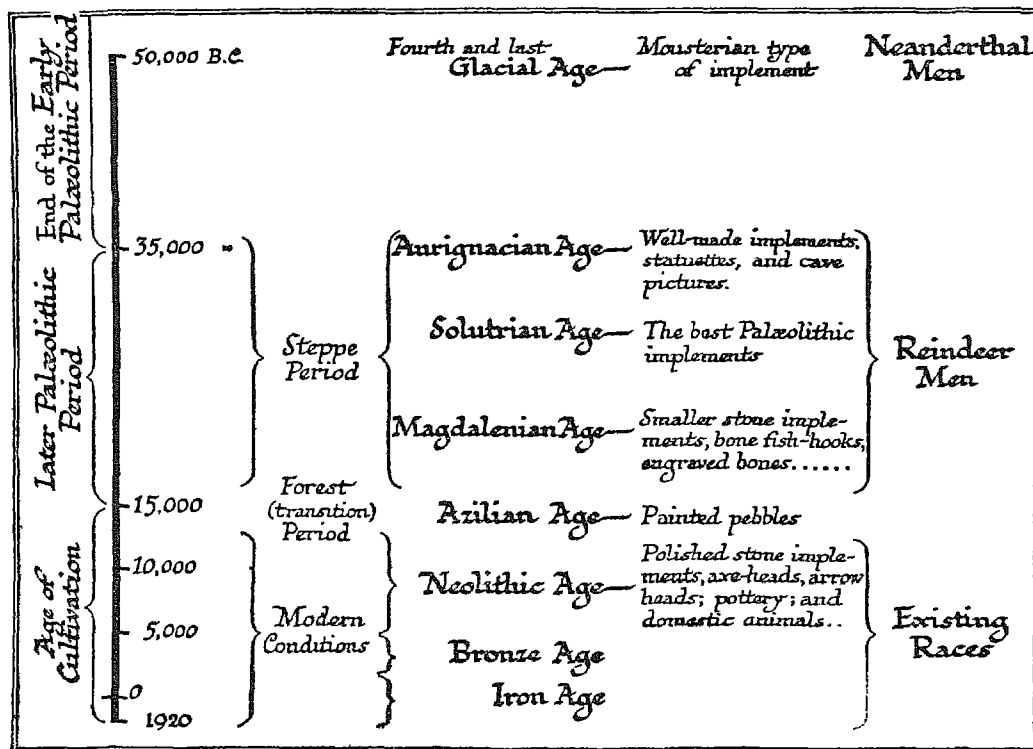 End of the Early
Palæolithic Period
Later Palæolithic
Period
Age of
Cultivation
50,000 B.C.
35,000 "
15,000
10,000
5,000
0
1920
Steppe
Period
Forest
(transition)
Period
Modern
Conditions
Fourth and last
Glacial Age — Mousterian type
of implement
Neanderthal
Men
Aurignacian Age — Well-made implements,
statuettes, and cave
pictures.
Solutrian Age — The best Palæolithic
implements
Magdalenian Age — Smaller stone imple-
ments, bone fish-hooks,
engraved bones......
Reindeer
Men
Azilian Age — Painted pebbles
Neolithic Age — Polished stone imple-
ments, axe-heads, arrow
heads; pottery; and
domestic animals..
Bronze Age
Iron Age
Existing
Races